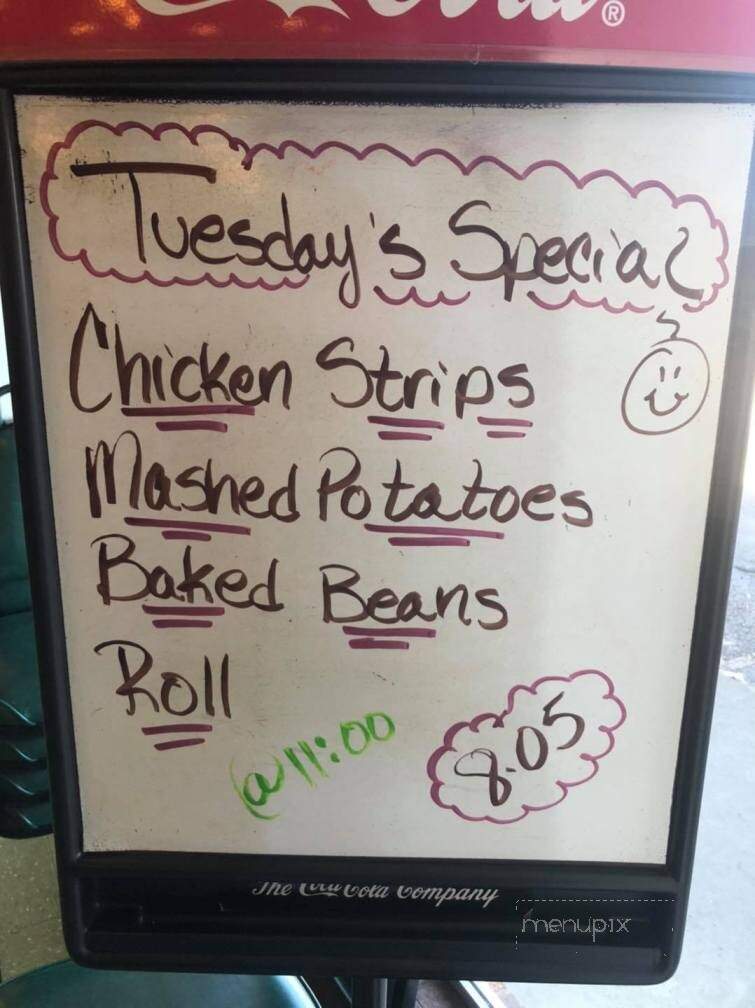 Coca-Cola®
Tuesday's Special
Chicken Strips
Mashed Potatoes
Baked Beans
Roll
@ 11:00
8.05
The Coca-Cola Company
menupix